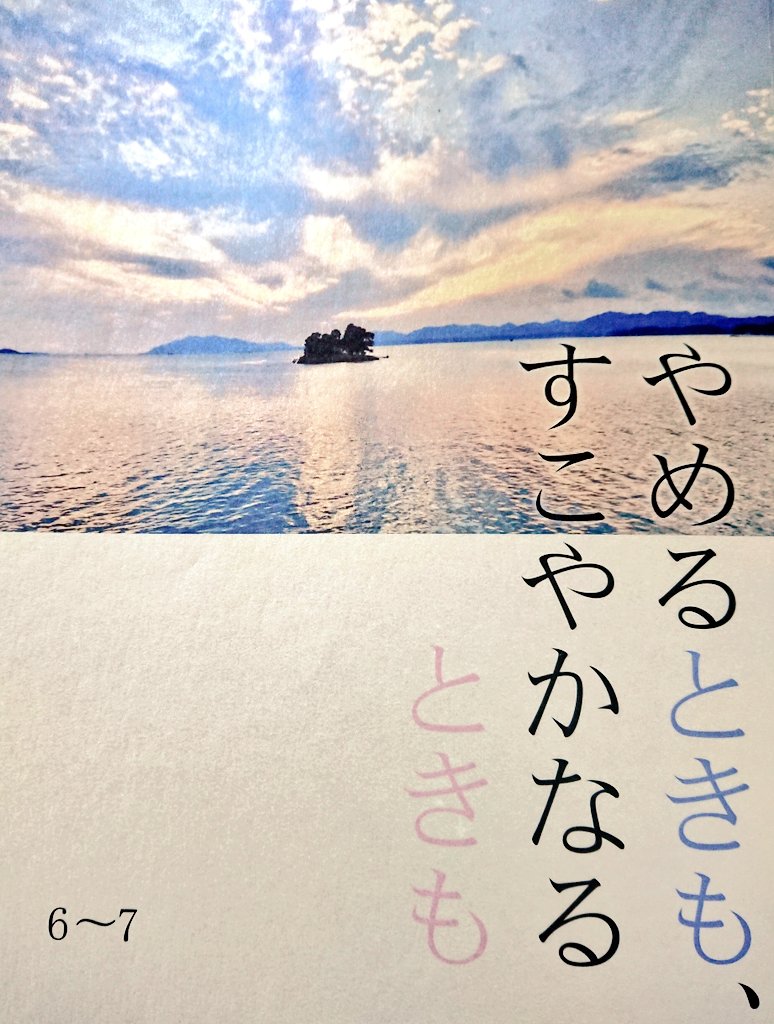 やめるときも、
すこやかなる
ときも
6〜7